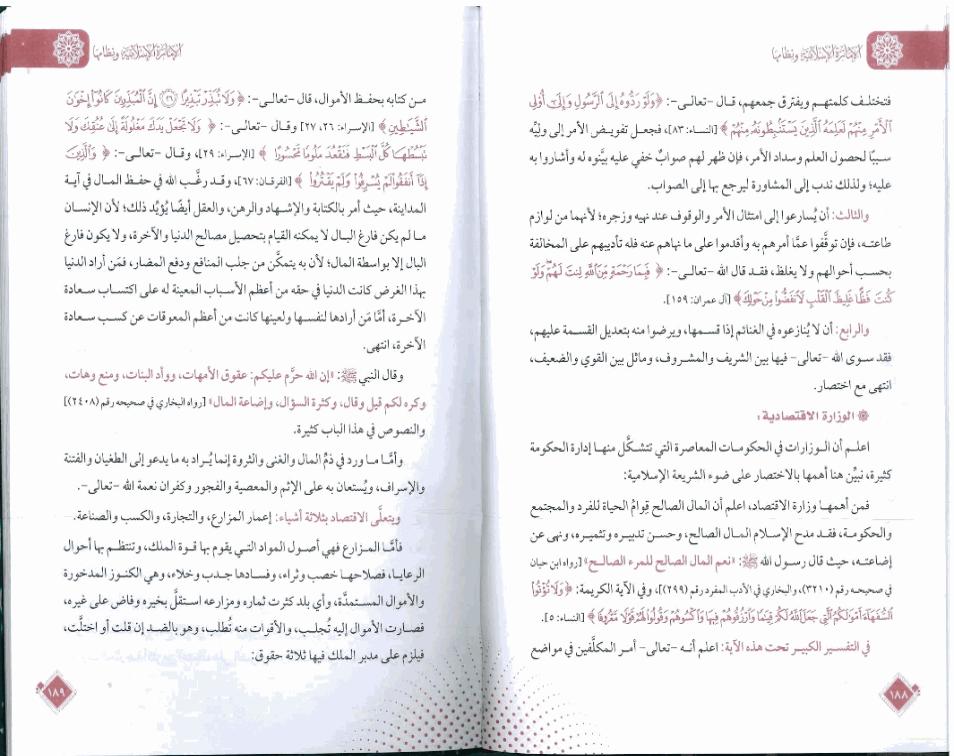 الإمارة الإسلامية ونظامها
فتختلف كلمتهم ويفترق جمعهم، قال -تعالى-: ﴿وَلَوْ رَدُّوهُ إِلَى الرَّسُولِ وَإِلَىٰ أُوْلِي
الْأَمْرِ مِنْهُمْ لَعَلِمَهُ الَّذِينَ يَسْتَنۢبِطُونَهُ مِنْهُمْ﴾ [النساء: ٨٣]، فجعل تفويض الأمر إلى وليِّه
سببًا لحصول العلم وسداد الأمر، فإن ظهر لهم صوابٌ خفي عليه بيَّنوه له وأشاروا به
عليه؛ ولذلك ندب إلى المشاورة ليرجع بها إلى الصواب.
والثالث: أن يُسارعوا إلى امتثال الأمر والوقوف عند نهيه وزجره؛ لأنهما من لوازم
طاعته، فإن توقَّفوا عمَّا أمرهم به وأقدموا على ما نهاهم عنه فله تأديبهم على المخالفة
بحسب أحوالهم ولا يغلظ، فقد قال الله -تعالى-: ﴿فَبِمَا رَحْمَةٍ مِّنَ اللَّهِ لِنتَ لَهُمْ وَلَوْ
كُنتَ فَظًّا غَلِيظَ الْقَلْبِ لَانفَضُّوا مِنْ حَوْلِكَ﴾ [آل عمران: ١٥٩].
والرابع: أن لا يُنازعوه في الغنائم إذا قسمها، ويرضوا منه بتعديل القسمة عليهم،
فقد سوى الله -تعالى- فيها بين الشريف والمشروف، وماثل بين القوي والضعيف،
انتهى مع اختصار.
الوزارة الاقتصادية:
اعلم أن الوزارات في الحكومات المعاصرة التي تتشكَّل منها إدارة الحكومة
كثيرة، نبيِّن هنا أهمها بالاختصار على ضوء الشريعة الإسلامية:
فمن أهمها وزارة الاقتصاد، اعلم أن المال الصالح قِوامُ الحياة للفرد والمجتمع
والحكومة، فقد مدح الإسلام المال الصالح، وحسن تدبيره وتثميره، ونهى عن
إضاعته، حيث قال رسول الله ﷺ: «نعم المال الصالح للمرء الصالح» [رواه ابن حبان
في صحيحه رقم (٣٢١٠)، والبخاري في الأدب المفرد رقم (٢٩٩)]، وفي الآية الكريمة: ﴿وَلَا تُؤْتُوا
السُّفَهَاءَ أَمْوَالَكُمُ الَّتِي جَعَلَ اللَّهُ لَكُمْ قِيَامًا وَارْزُقُوهُمْ فِيهَا وَاكْسُوهُمْ وَقُولُوا لَهُمْ قَوْلًا مَّعْرُوفًا﴾ [النساء: ٥].
في التفسير الكبير تحت هذه الآية: اعلم أنه -تعالى- أمر المكلَّفين في مواضع
١٨٨
الإمارة الإسلامية ونظامها
من كتابه بحفظ الأموال، قال -تعالى-: ﴿وَلَا تُبَذِّرْ تَبْذِيرًا ۝٢٦ إِنَّ الْمُبَذِّرِينَ كَانُوا إِخْوَانَ
الشَّيَاطِينِ﴾ [الإسراء: ٢٦، ٢٧] وقال -تعالى-: ﴿وَلَا تَجْعَلْ يَدَكَ مَغْلُولَةً إِلَىٰ عُنُقِكَ وَلَا
تَبْسُطْهَا كُلَّ الْبَسْطِ فَتَقْعُدَ مَلُومًا مَّحْسُورًا﴾ [الإسراء: ٢٩]، وقال -تعالى-: ﴿وَالَّذِينَ
إِذَا أَنفَقُوا لَمْ يُسْرِفُوا وَلَمْ يَقْتُرُوا﴾ [الفرقان: ٦٧]، وقد رغَّب الله في حفظ المال في آية
المداينة، حيث أمر بالكتابة والإشهاد والرهن، والعقل أيضًا يُؤيِّد ذلك؛ لأن الإنسان
ما لم يكن فارغ البال لا يمكنه القيام بتحصيل مصالح الدنيا والآخرة، ولا يكون فارغ
البال إلا بواسطة المال؛ لأن به يتمكَّن من جلب المنافع ودفع المضار، فمَن أراد الدنيا
بهذا الغرض كانت الدنيا في حقه من أعظم الأسباب المعينة له على اكتساب سعادة
الآخرة، أمَّا مَن أرادها لنفسها ولعينها كانت من أعظم المعوقات عن كسب سعادة
الآخرة، انتهى.
وقال النبي ﷺ: «إن الله حرَّم عليكم: عقوق الأمهات، ووأد البنات، ومنع وهات،
وكره لكم قيل وقال، وكثرة السؤال، وإضاعة المال» [رواه البخاري في صحيحه رقم (٢٤٠٨)]
والنصوص في هذا الباب كثيرة.
وأمَّا ما ورد في ذمّ المال والغنى والثروة إنما يُراد به ما يدعو إلى الطغيان والفتنة
والإسراف، ويُستعان به على الإثم والمعصية والفجور وكفران نعمة الله -تعالى-.
ويتعلَّق الاقتصاد بثلاثة أشياء: إعمار المزارع، والتجارة، والكسب والصناعة.
فأمَّا المزارع فهي أصول المواد التي يقوم بها قوة الملك، وتنتظم بها أحوال
الرعايا، فصلاحها خصب وثراء، وفسادها جدب وخلاء، وهي الكنوز المدخورة
والأموال المستمدَّة، وأي بلد كثرت ثماره ومزارعه استقلَّ بخيره وفاض على غيره،
فصارت الأموال إليه تُجلب، والأقوات منه تُطلب، وهو بالضد إن قلت أو اختلَّت،
فيلزم على مدبر الملك فيها ثلاثة حقوق:
١٨٩